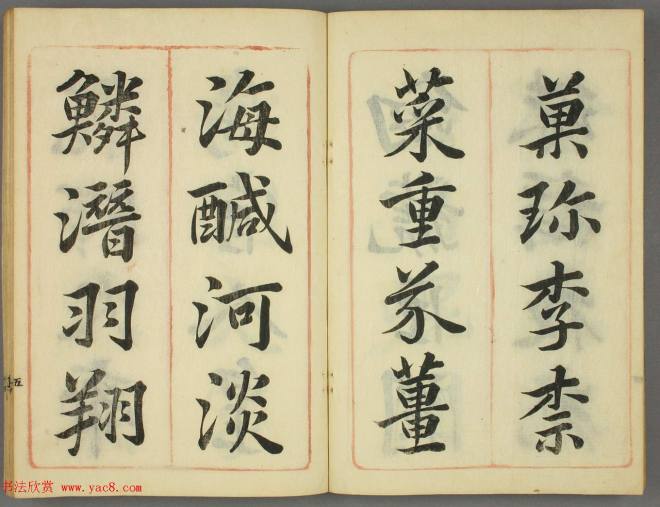 菓珎李柰
菜重芥薑
海醎河淡
鱗潛羽翔
五
书法欣赏 www.yac8.com